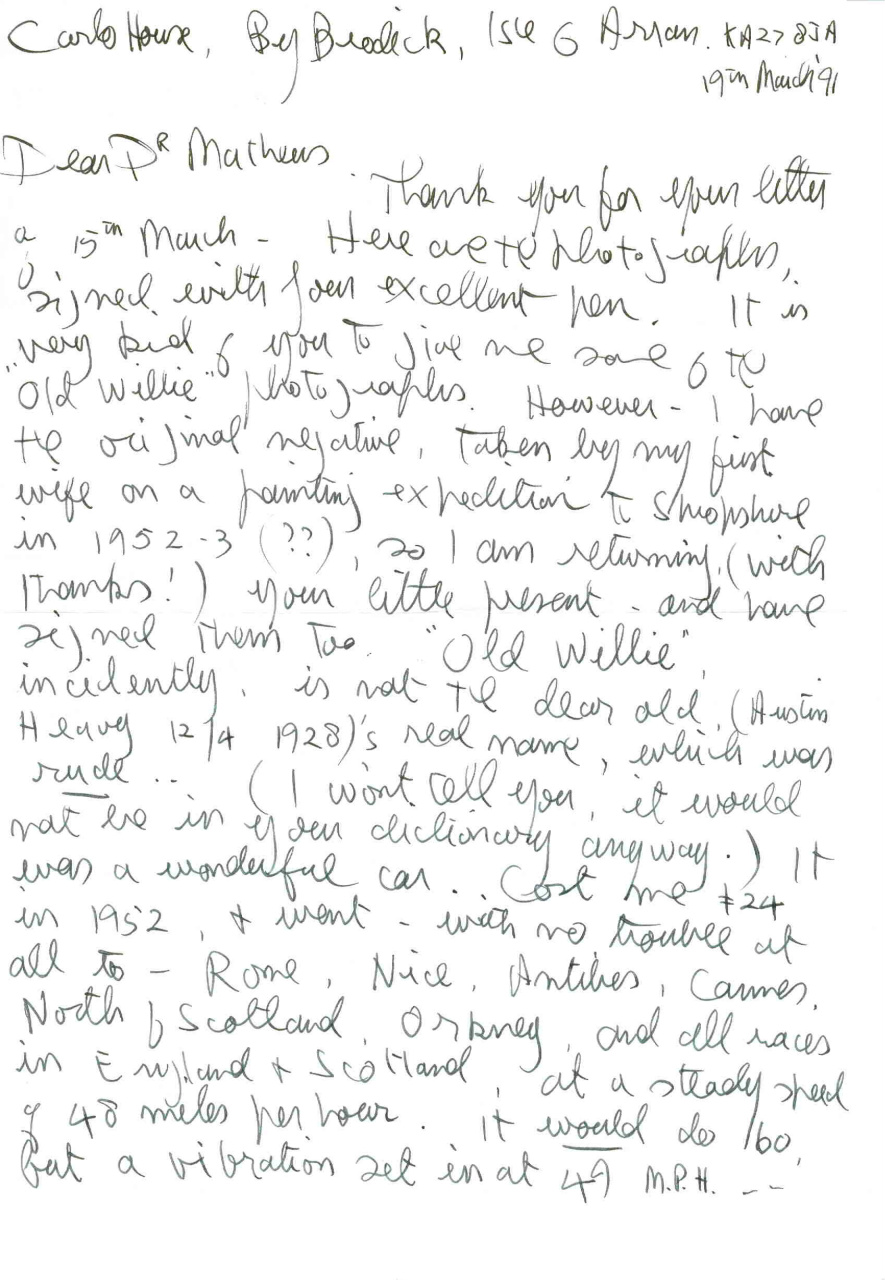 Carlo House, By Brodick, Isle of Arran. KA27 8JA
19th March '91
Dear Dr Mathews
Thank you for your letter
of 15th March - Here are the photographs,
signed with your excellent pen. It is
very kind of you to give me some of the
"Old Willie" photographs. However - I have
the original negative, taken by my first
wife on a painting expedition to Shropshire
in 1952-3 (??), so I am returning, (with
thanks!) your little present - and have
signed them too. "Old Willie",
incidently, is not the dear old, (Austin
Heavy 12/4 1928)'s real name, which was
rude .. (I wont tell you, it would
not be in your dictionary anyway.) It
was a wonderful car. Cost me £24
in 1952, & went - with no trouble at
all to - Rome, Nice, Antibes, Cannes,
North of Scotland, Orkney, and all races
in England & Scotland, at a steady speed
of 48 miles per hour. It would do 60,
but a vibration set in at 49 M.P.H. ---